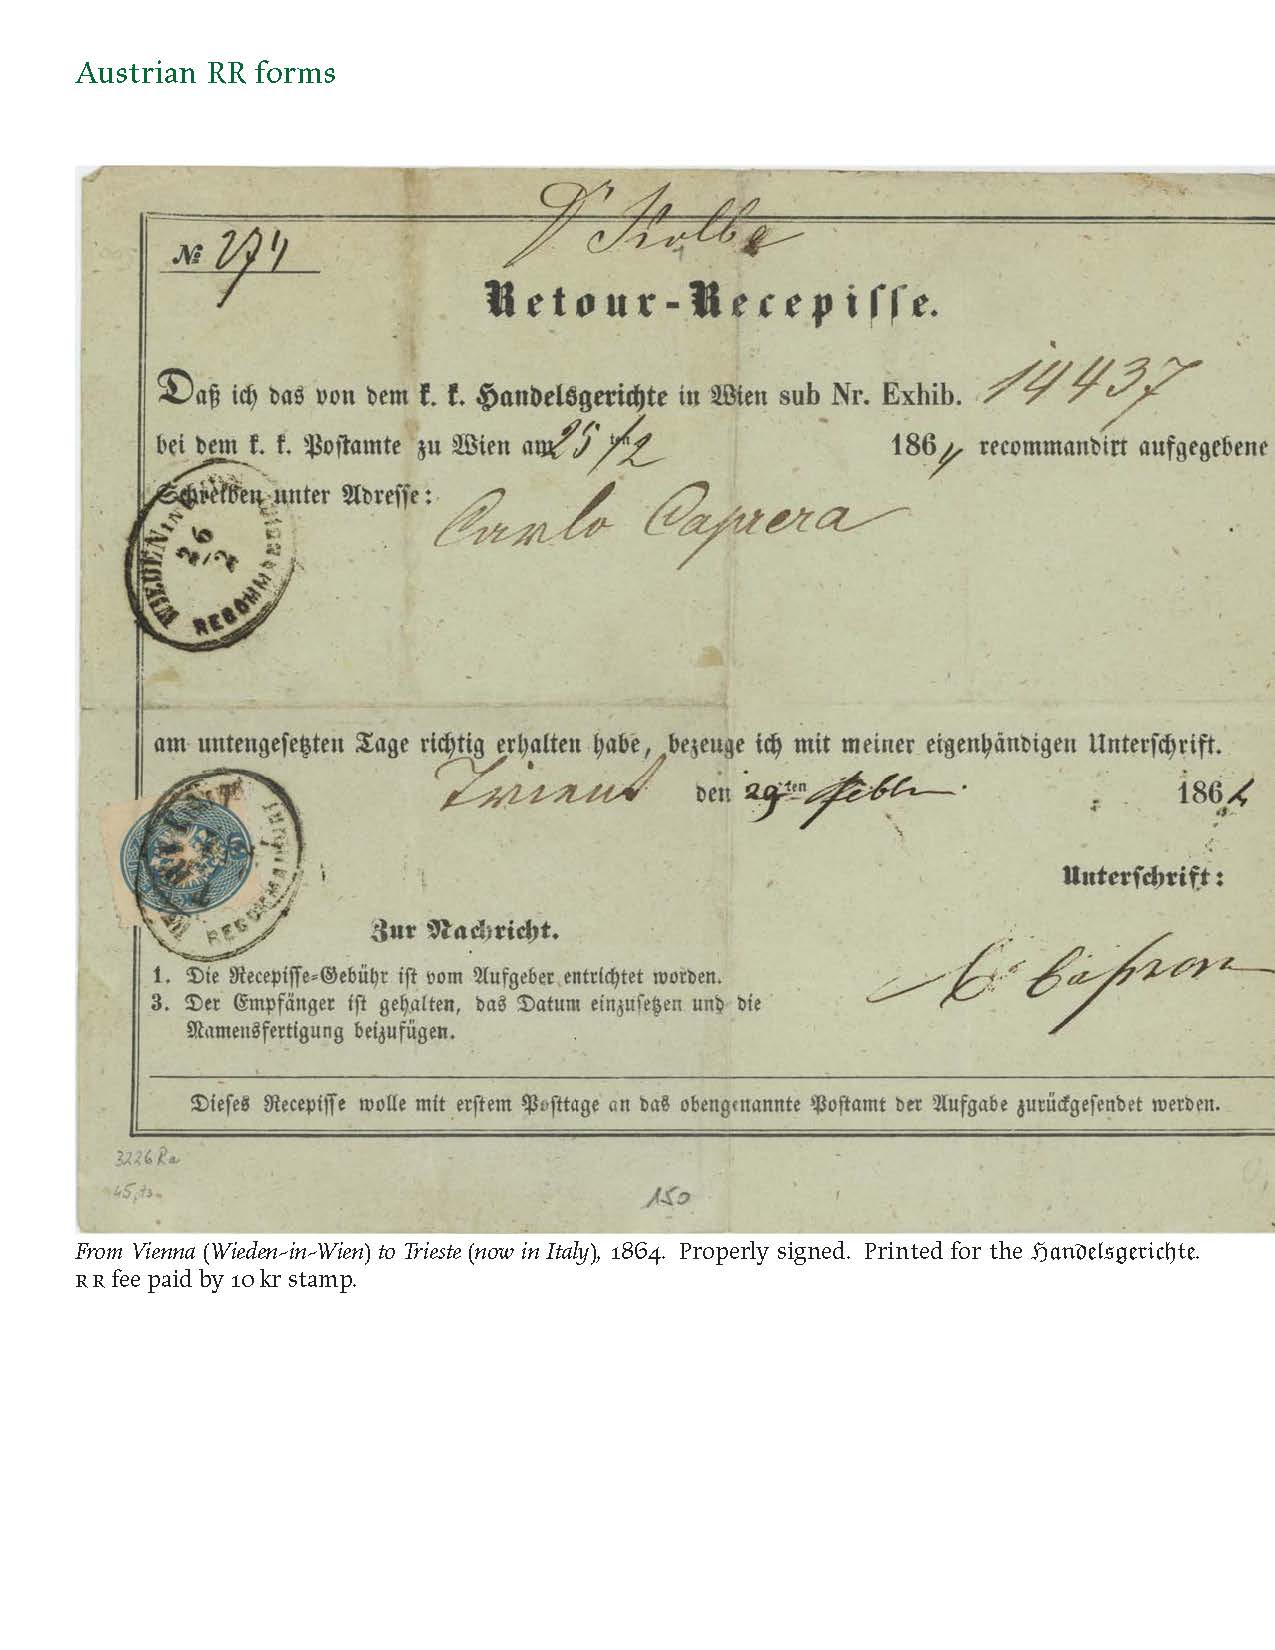 Austrian RR forms
Dr Kolbe
№ 274
Retour-Recepiſſe.
Daß ich das von dem k. k. Handelsgerichte in Wien sub Nr. Exhib. 14437
bei dem k. k. Poſtamte zu Wien am 25 ten /2 1864 recommandirt aufgegebene
Schreiben unter Adreſſe:
Carlo Caprera
WIEDEN IN
26/2
RECOMMANDIRT
am untengeſetzten Tage richtig erhalten habe, bezeuge ich mit meiner eigenhändigen Unterſchrift.
Trient den 29ten Febr 1864
Unterſchrift:
RECOMMANDIRT
Zur Nachricht.
1. Die Recepiſſe-Gebühr iſt vom Aufgeber entrichtet worden.
3. Der Empfänger iſt gehalten, das Datum einzuſetzen und die
Namensfertigung beizufügen.
Dieſes Recepiſſe wolle mit erſtem Poſttage an das obengenannte Poſtamt der Aufgabe zurückgeſendet werden.
3226 Ra
150
From Vienna (Wieden-in-Wien) to Trieste (now in Italy), 1864. Properly signed. Printed for the Handelsgerichte.
RR fee paid by 10 kr stamp.